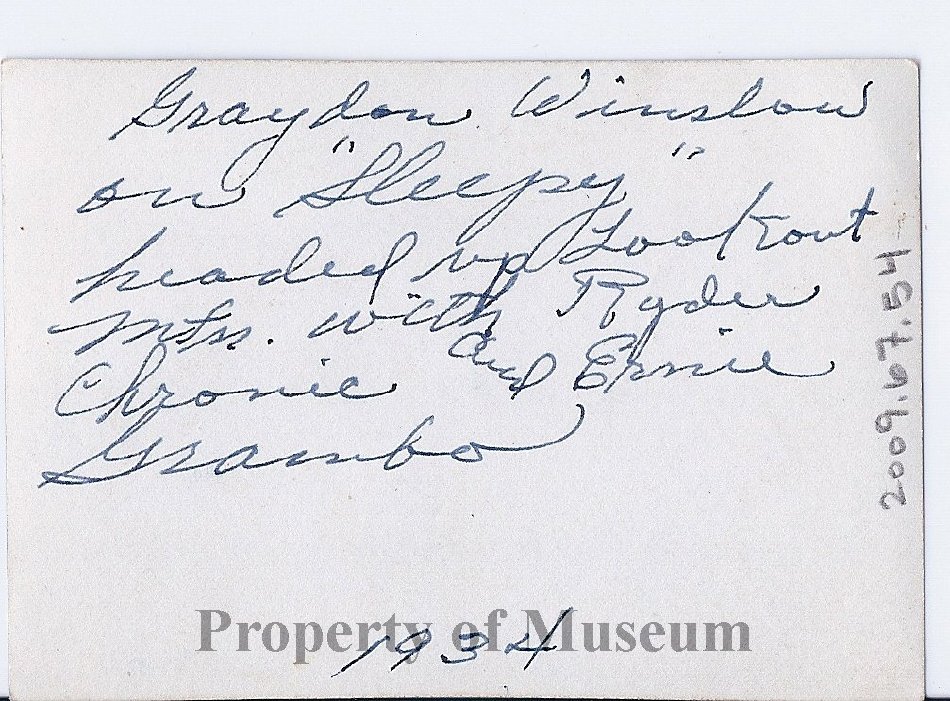 Graydon Winslow
on "Sleepy"
headed up Lookout
mtn. with Ryder
Chronic and Ernie
Grambo
1934
Property of Museum
2009.67.54